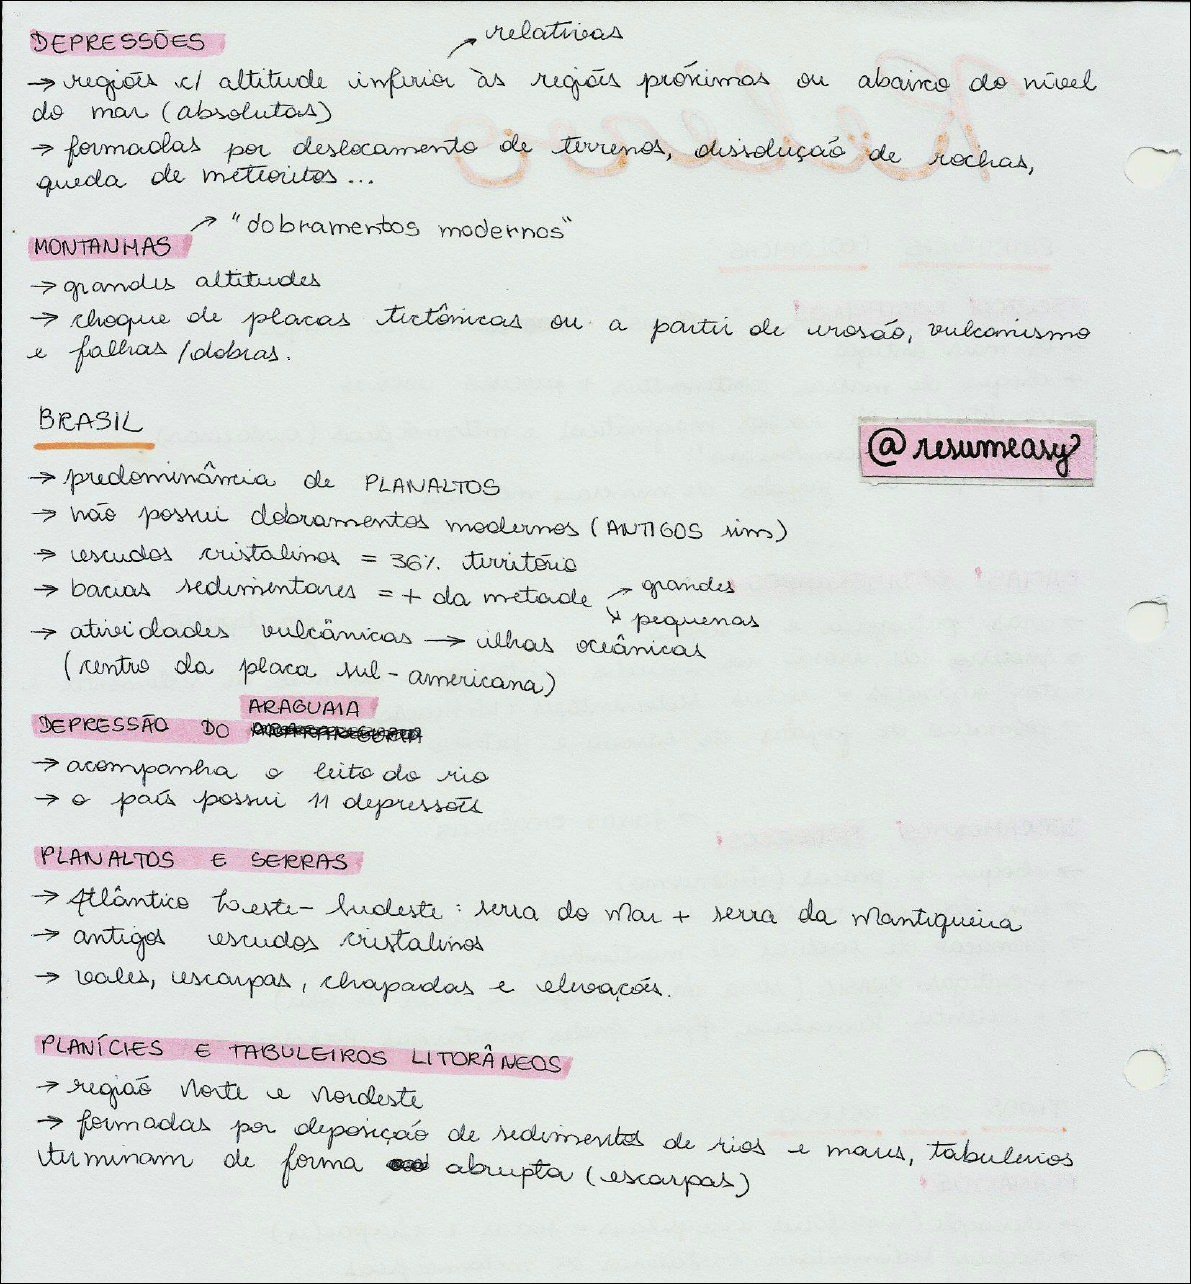 relativas
DEPRESSÕES
→ regiões c/ altitude inferior às regiões próximas ou abaixo do nível
do mar (absolutas)
→ formadas por deslocamento de terrenos, dissolução de rochas,
queda de meteoritos...
→ "dobramentos modernos"
MONTANHAS
→ grandes altitudes
→ choque de placas tectônicas ou a partir de erosão, vulcanismo
e falhas/dobras.
BRASIL
@resumeasy
→ predominância de PLANALTOS
→ não possui dobramentos modernos (ANTIGOS sim)
→ escudos cristalinos = 36% território
→ bacias sedimentares = + da metade → grandes
↘ pequenas
→ atividades vulcânicas → ilhas oceânicas
(centro da placa sul-americana)
ARAGUAIA
DEPRESSÃO DO
→ acompanha o leito do rio
→ o país possui 11 depressões
PLANALTOS E SERRAS
→ Atlântico Leste-Sudeste: serra do Mar + serra da Mantiqueira
→ antigos escudos cristalinos
→ vales, escarpas, chapadas e elevações.
PLANÍCIES E TABULEIROS LITORÂNEOS
→ região Norte e Nordeste
→ formadas por deposição de sedimentos de rios e mares, tabuleiros
terminam de forma abrupta (escarpas)